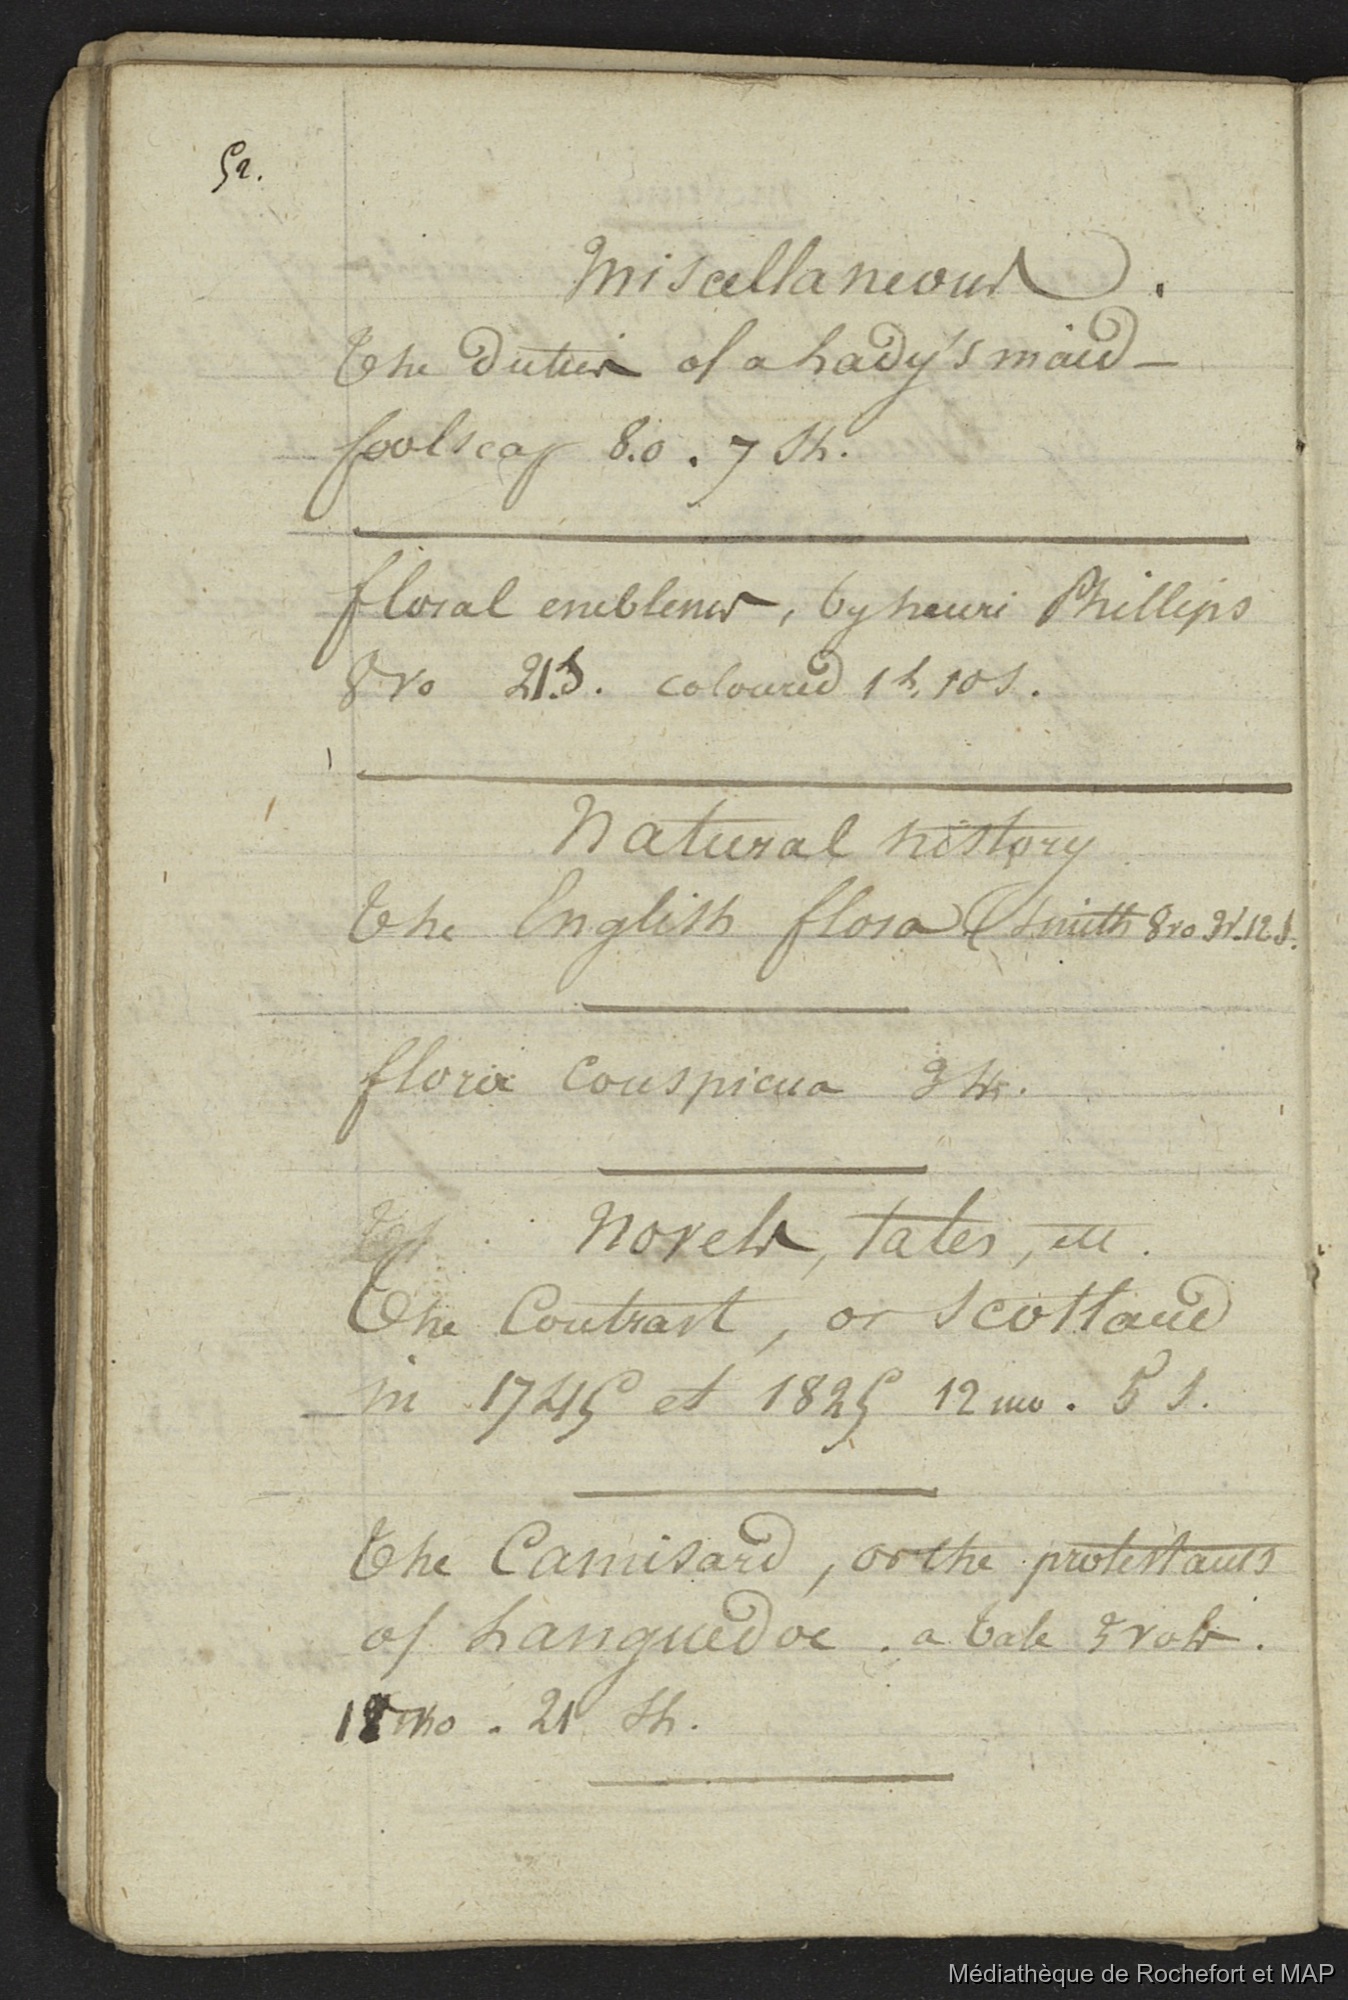 52.
Miscellaneous.
the Duties of a Lady's maid—
foolscap 8.o. 7 Sh.
floral emblems, by henri Phillips
8vo 21.S. coloured 1 L. 10 s.
Natural history
the English flora Smith 8vo 12 s.
flora Conspicua 3 sh.
Novels, tales, etc.
The Contrast, or Scotland
in 1745 et 1825 12 mo. 5 s.
the Camisard, or the protestants
of Languedoc. a tale 3 vols.
12mo. 21 Sh.
Médiathèque de Rochefort et MAP